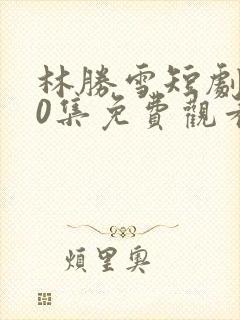 林勝雪短劇
0集免費觀看
煩里奧